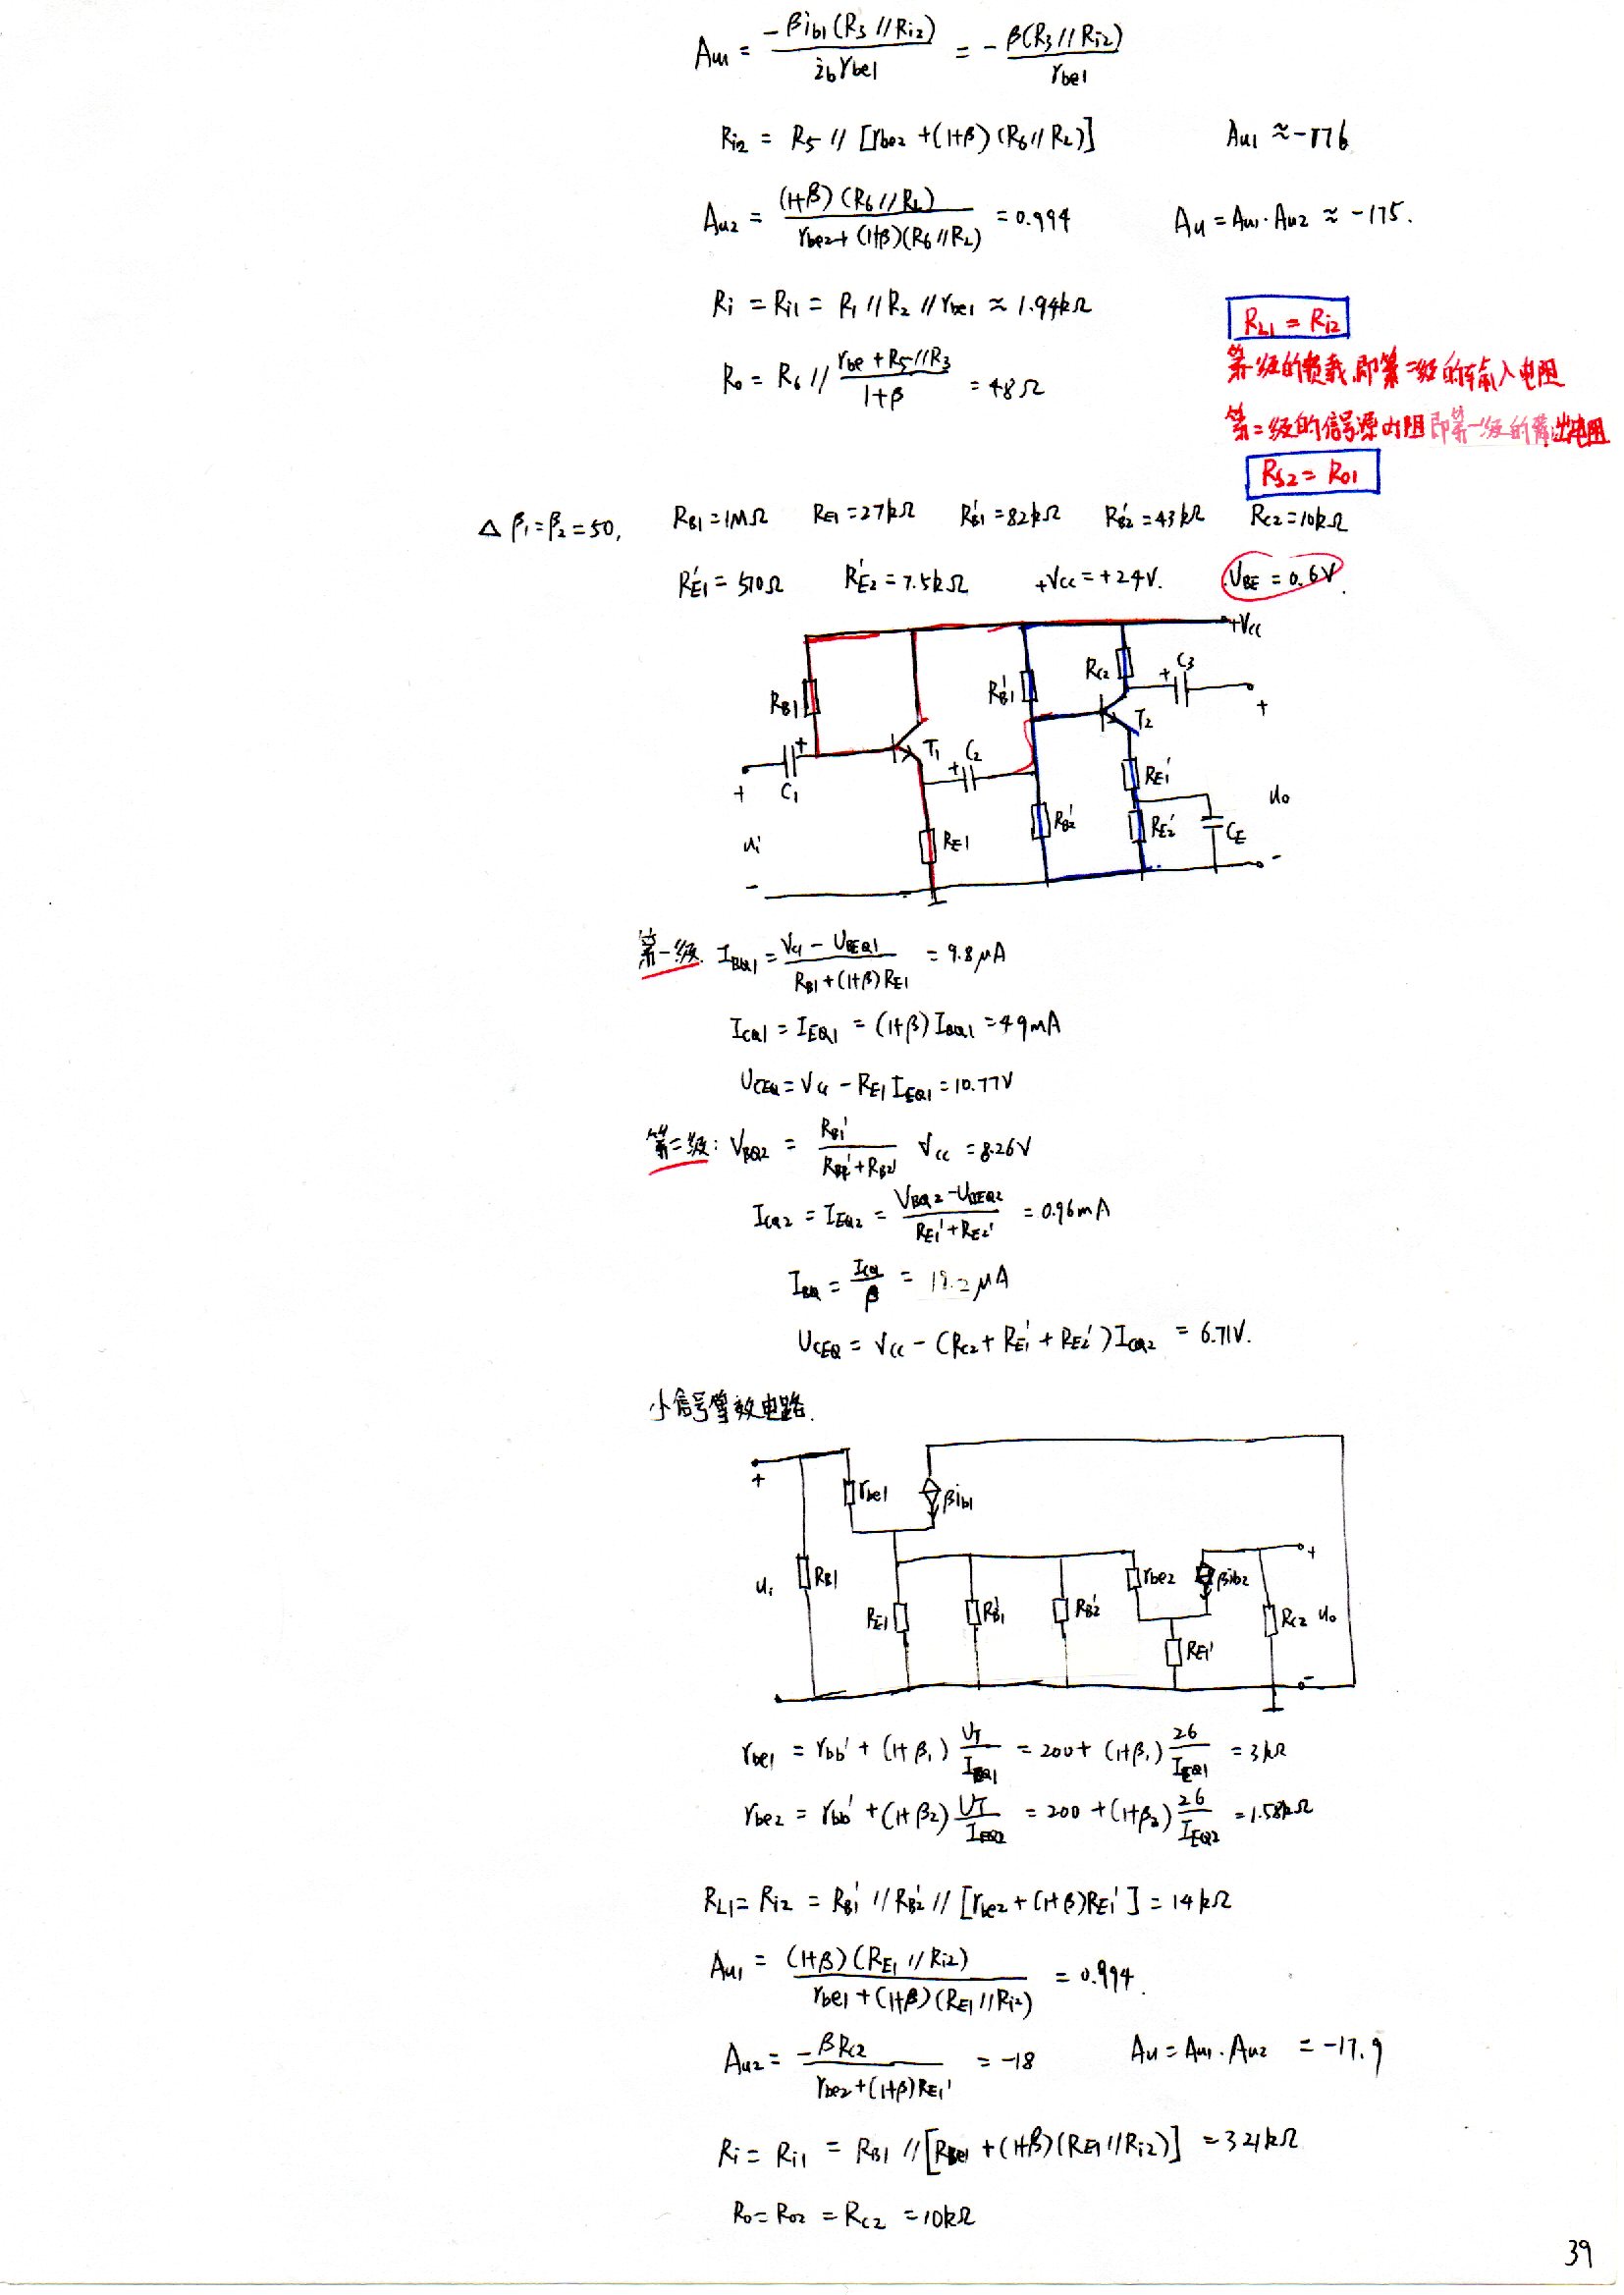 Au1 = -βib1(R3//Ri2) / ibrbe1 = - β(R3//Ri2) / rbe1
Ri2 = R5 // [rbe2 + (1+β)(R6//RL)] Au1 ≈ -176
Au2 = (1+β)(R6//RL) / rbe2+(1+β)(R6//RL) = 0.994 Au = Au1·Au2 ≈ -175.
Ri = Ri1 = R1//R2//rbe1 ≈ 1.94kΩ
RL1 = Ri2
第一级的负载,即第二级的输入电阻
Ro = R6 // rbe+R5//R3 / 1+β = 48Ω
第二级的信号源内阻即第一级的输出电阻
RS2 = Ro1
△ β1=β2=50, RB1=1MΩ RE1=27kΩ RB1'=82kΩ RB2'=43kΩ RC2=10kΩ
RE1'=510Ω RE2'=7.5kΩ +VCC=+24V. UBE=0.6V.
+VCC
RB1
RB1'
RC2
C3
+
+
T2
C1
+
+
T1
C2
+
RE1'
ui
RE1
RB2'
RE2'
CE
uo
-
-
第一级. IBQ1 = VCC - UBEQ1 / RB1+(1+β)RE1 = 9.8μA
ICQ1 = IEQ1 = (1+β)IBQ1 = 49mA
UCEQ = VCC - RE1IEQ1 = 10.77V
第二级: VBQ2 = RB1' / RB2'+RB2' VCC = 8.26V
ICQ2 = IEQ2 = VBQ2-UBEQ2 / RE1'+RE2' = 0.96mA
IBQ = ICQ / β = 19.2μA
UCEQ = VCC - (RC2+RE1'+RE2')ICQ2 = 6.71V.
小信号等效电路.
+
rbe1
βib1
ui
RB1
RE1
RB1'
RB2'
rbe2
βib2
RE1'
RC2
uo
+
-
rbe1 = rbb' + (1+β1) UT / IEQ1 = 200 + (1+β1) 26 / IEQ1 = 3kΩ
rbe2 = rbb' + (1+β2) UT / IEQ2 = 200 + (1+β2) 26 / IEQ2 = 1.58kΩ
RL1 = Ri2 = RB1'//RB2'//[rbe2+(1+β)RE1'] = 14kΩ
Au1 = (1+β)(RE1//Ri2) / rbe1+(1+β)(RE1//Ri2) = 0.994.
Au2 = -βRC2 / rbe2+(1+β)RE1' = -18 Au = Au1·Au2 = -17.9
Ri = Ri1 = RB1//[Rbe1+(1+β)(RE1//Ri2)] = 321kΩ
Ro = Ro2 = RC2 = 10kΩ
39